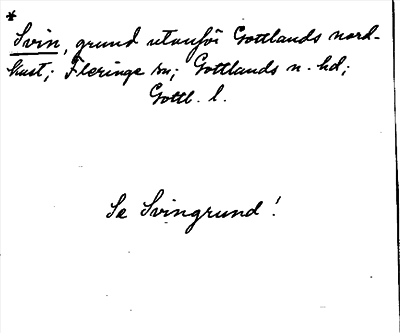 *
Svin, grund utanför Gottlands nord-
kust; Fleringe sn; Gottlands n. hd;
Gottl. l.
Se Svingrund!